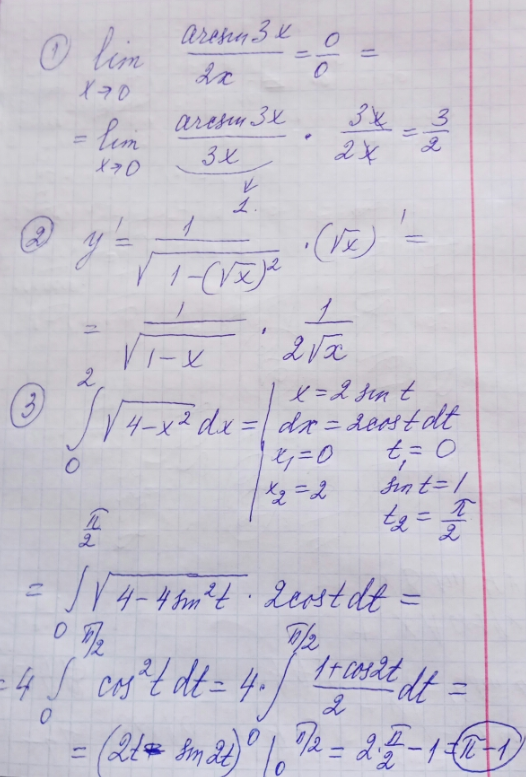 ① lim x→0 arcsin 3x / 2x = 0/0 =
= lim x→0 arcsin 3x / 3x · 3x / 2x = 3/2
1.
② y' = 1 / √(1-(√x)²) · (√x)' =
= 1 / √(1-x) · 1 / 2√x
③ ∫₀² √(4-x²) dx = | x = 2 sin t
dx = 2cost dt
x₁ = 0 t₁ = 0
x₂ = 2 sin t = 1
t₂ = π/2
= ∫₀^(π/2) √(4-4sin²t) · 2cost dt =
= 4 ∫₀^(π/2) cos²t dt = 4 · ∫₀^(π/2) (1+cos2t)/2 dt =
= (2t - sin 2t)⁰ |₀^(π/2) = 2·π/2 - 1 = π-1